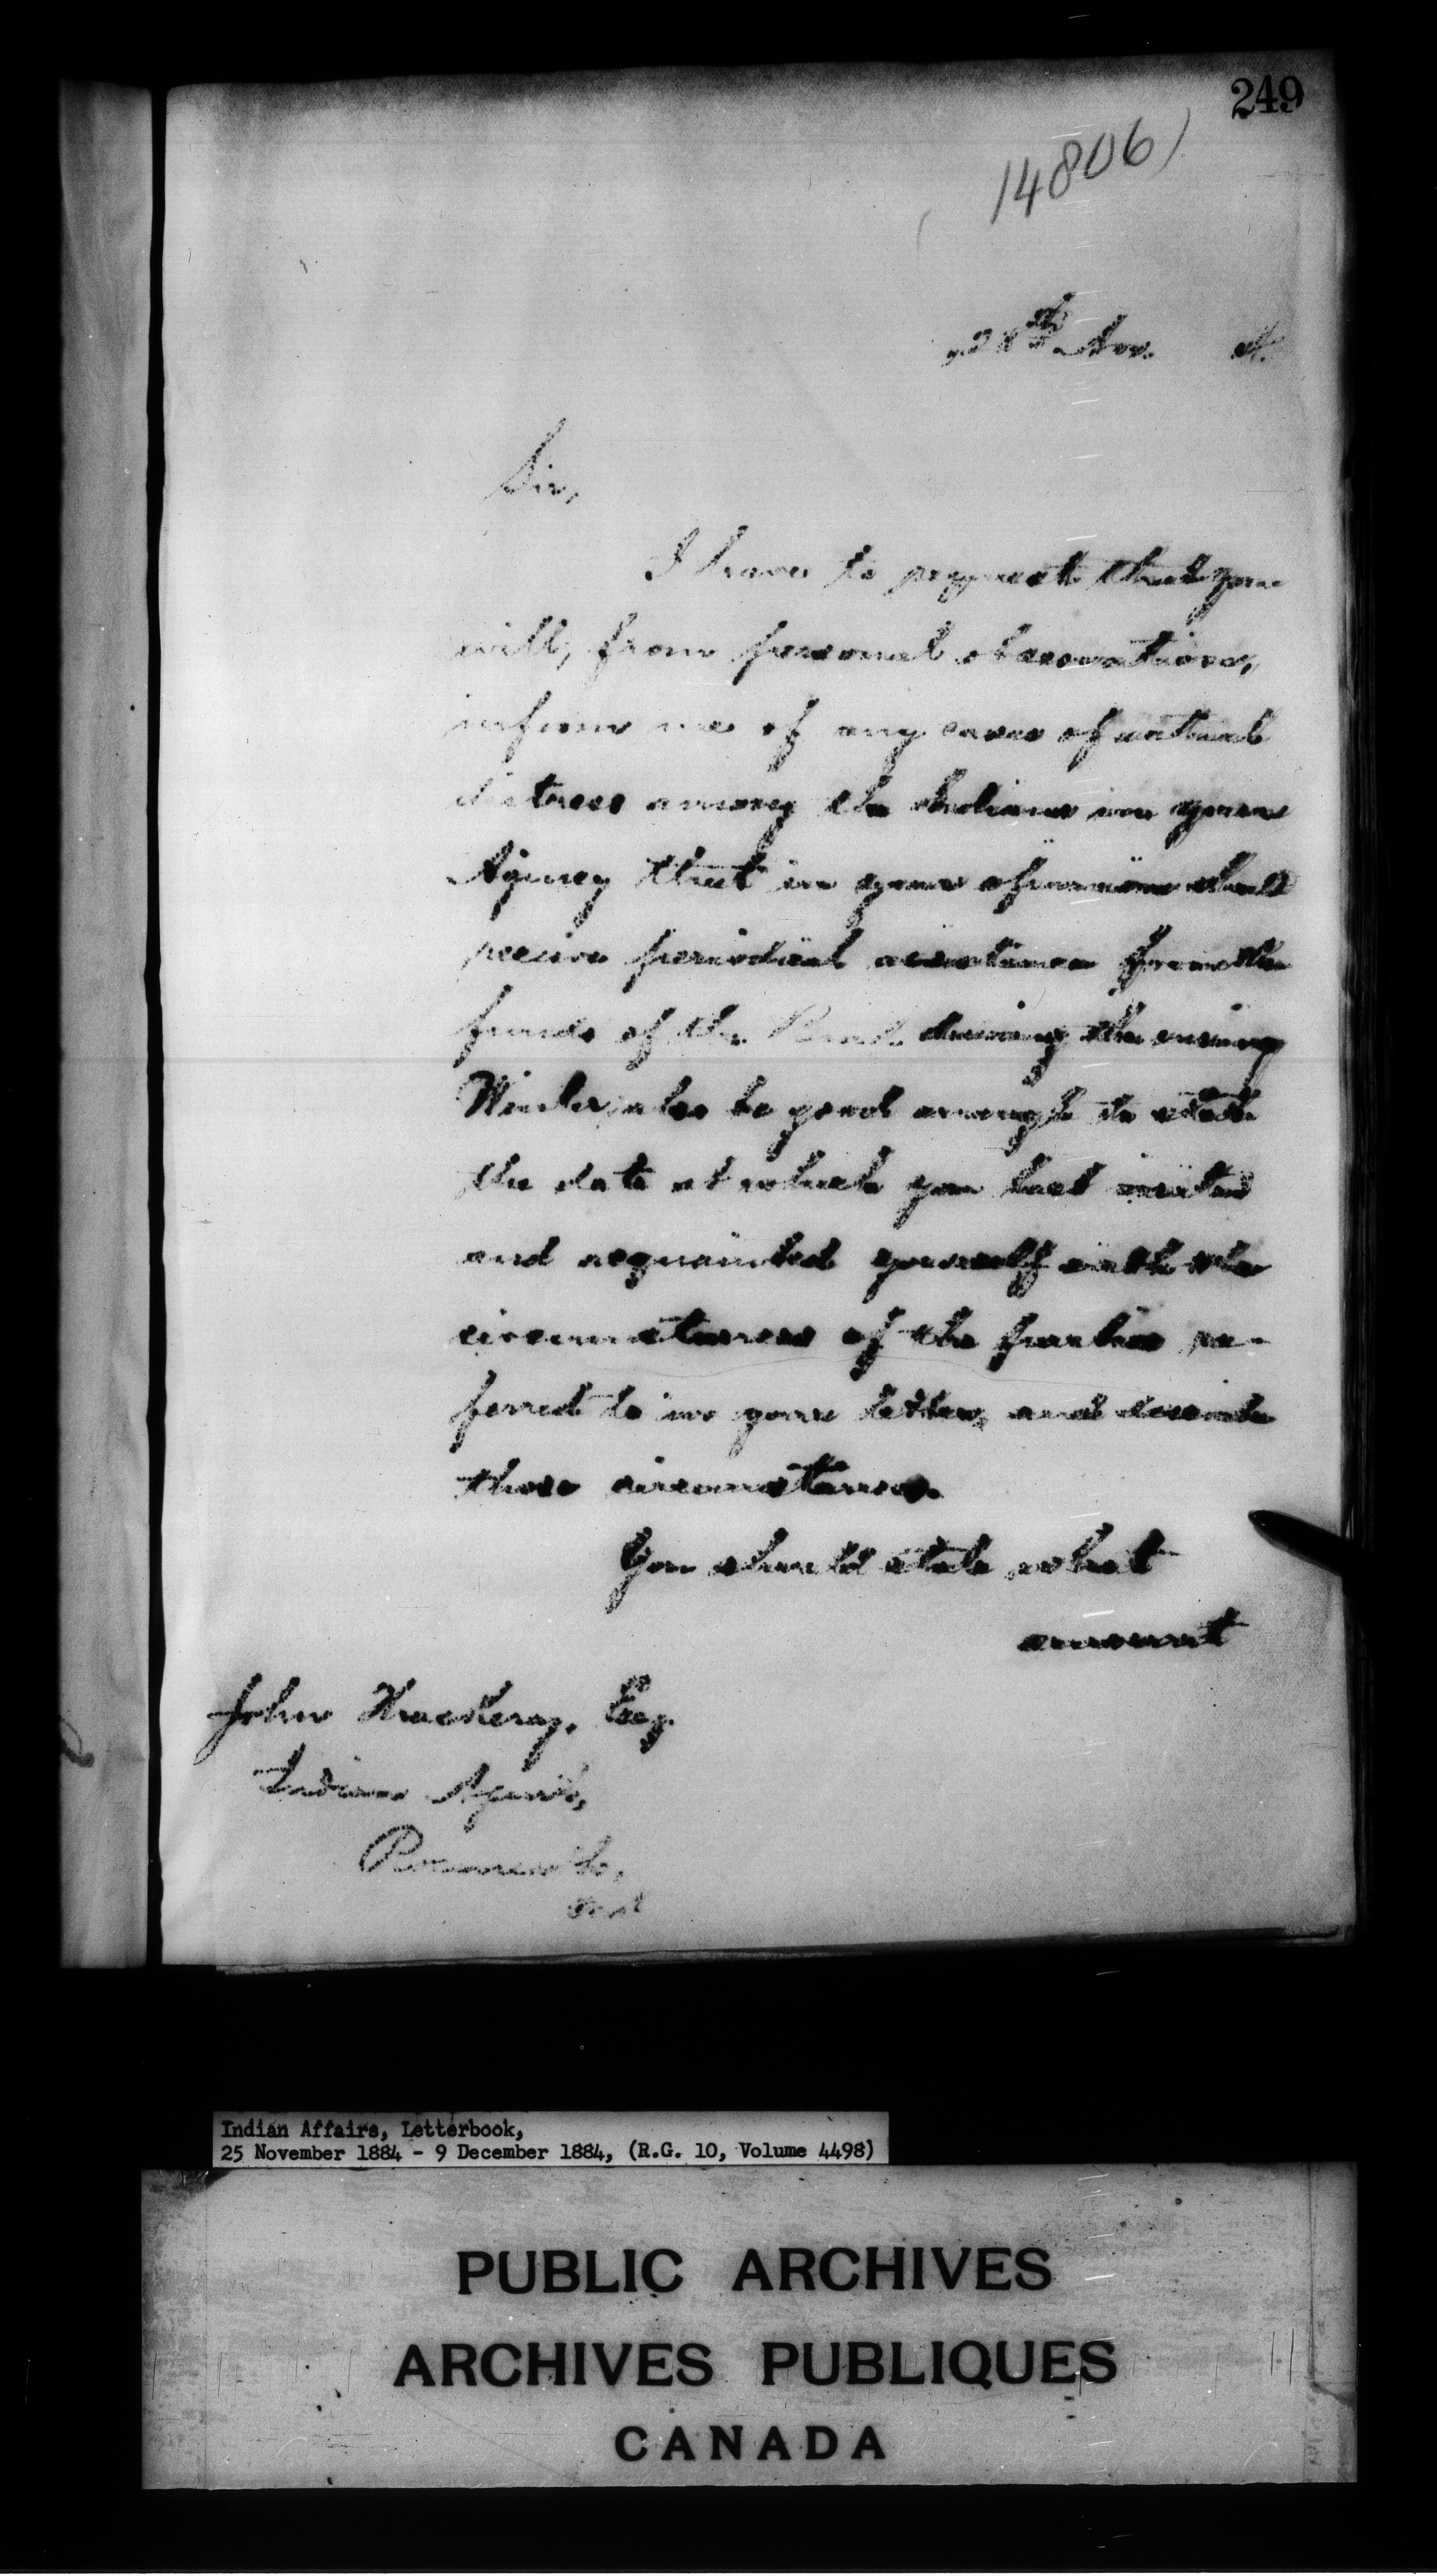 249
14806)
28th Nov. 84.
Sir,
I have to request that you
will, from personal observation,
inform me of any cases of actual
distress among the Indians in your
Agency that in your opinion should
receive periodical assistance from the
funds of the Band during the ensuing
Winter, also be good enough to state
the date at which you last visited
and acquainted yourself with the
circumstances of the parties re-
ferred to in your letter, and describe
those circumstances.
You should state what
amount
John Thackeray, Esq.
Indian Agent,
Roseneath,
Ont
Indian Affairs, Letterbook,
25 November 1884 - 9 December 1884, (R.G. 10, Volume 4498)
PUBLIC ARCHIVES
ARCHIVES PUBLIQUES
CANADA